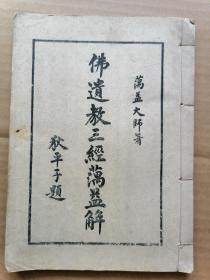 蕅益大師著
佛遺教三經蕅益解
狄平子題